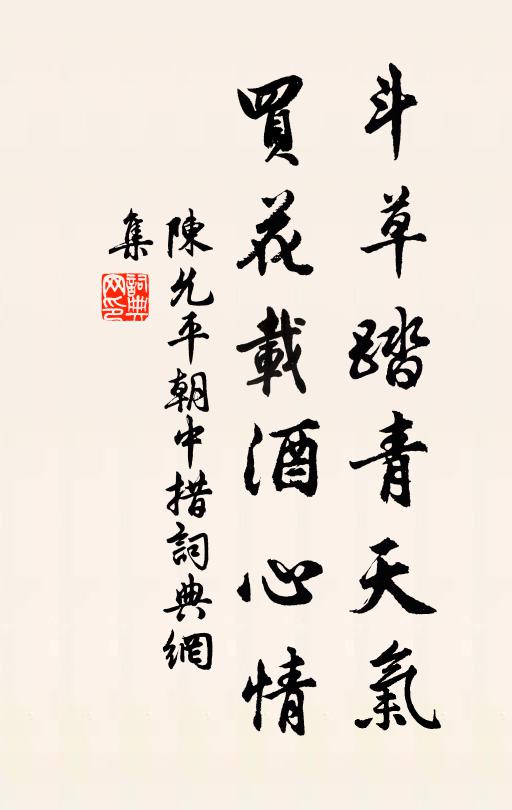 斗草踏青天氣
買花載酒心情
陳允平朝中措詞典網
集
詞典
网印